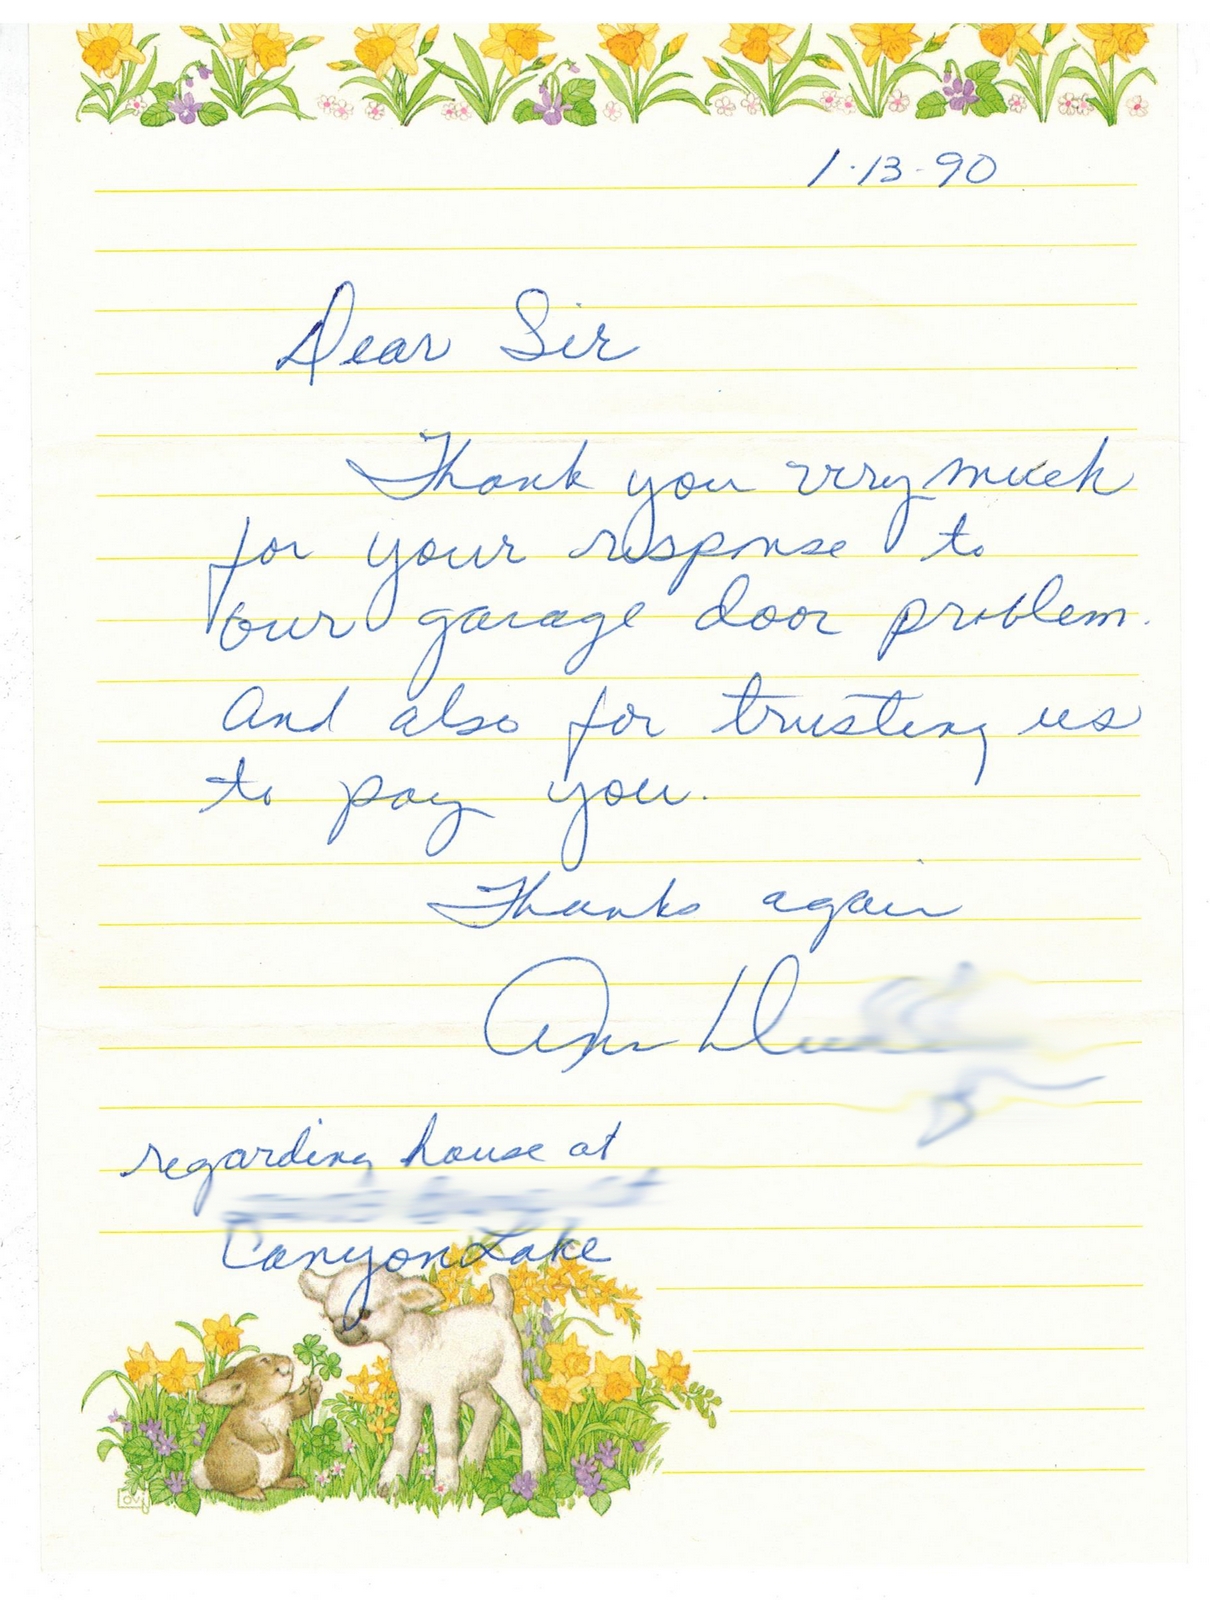 1-13-90
Dear Sir
Thank you very much
for your response to
our garage door problem.
And also for trusting us
to pay you.
Thanks again
Ann
regarding house at
Canyon Lake